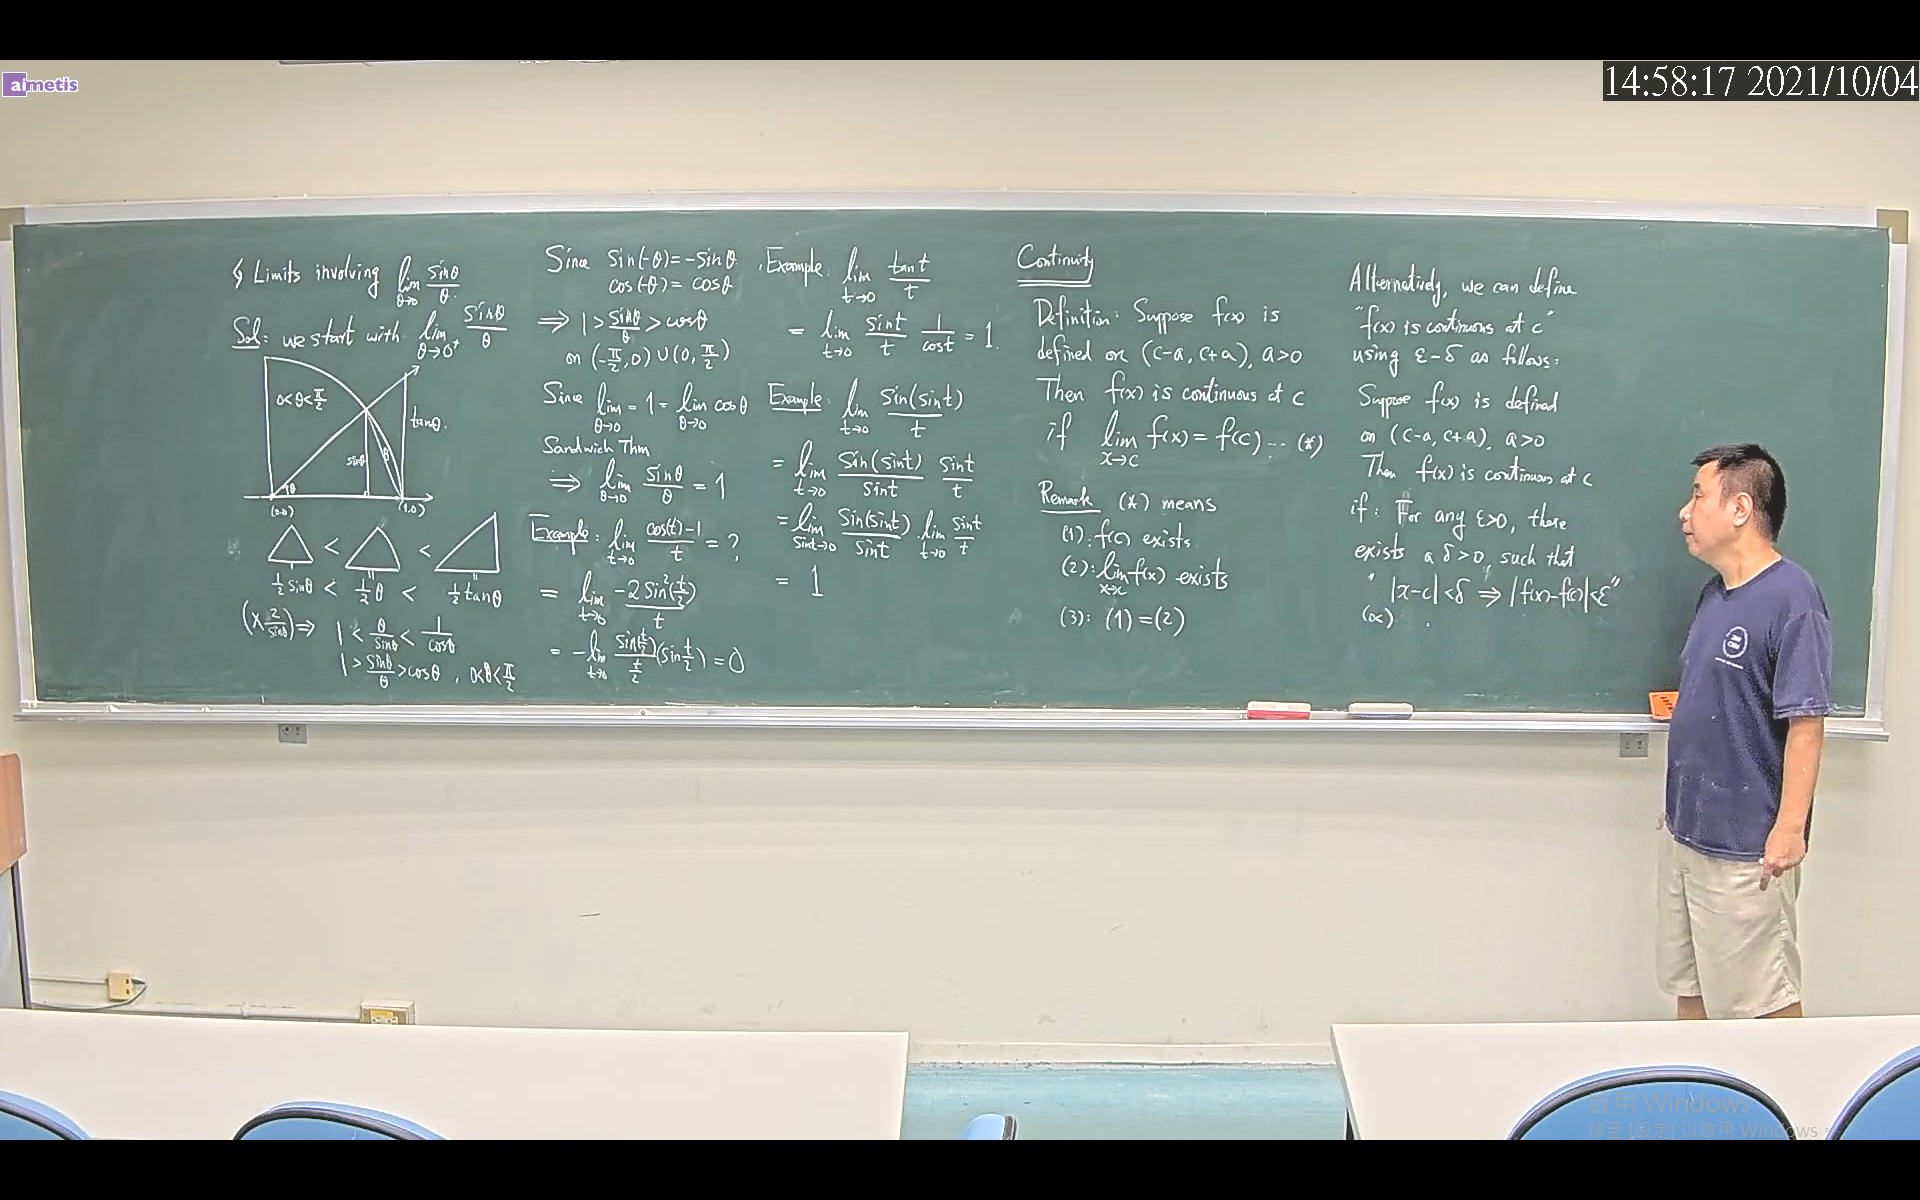 aimetis
14:58:17 2021/10/04
§ Limits involving lim θ→0 sinθ/θ
Sol: we start with lim θ→0⁺ sinθ/θ
0<θ<π/2
tanθ
sinθ
θ
θ
(0,0)
(1,0)
△ < △ < △
½ sinθ < ½θ < ½ tanθ
(× 2/sinθ) ⇒ 1 < θ/sinθ < 1/cosθ
1 > sinθ/θ > cosθ, 0<θ<π/2
Since sin(-θ) = -sinθ
cos(-θ) = cosθ
⇒ 1 > sinθ/θ > cosθ
on (-π/2, 0) ∪ (0, π/2)
Since lim θ→0 1 = lim θ→0 cosθ
Sandwich Thm
⇒ lim θ→0 sinθ/θ = 1
Example: lim t→0 (cos(t)-1)/t = ?
= lim t→0 -2sin²(t/2)/t
= -lim t→0 sin(t/2)/(t/2) (sin t/2) = 0
Example: lim t→0 tan t/t
= lim t→0 sin t/t 1/cos t = 1.
Example: lim t→0 sin(sin t)/t
= lim t→0 sin(sin t)/sin t sin t/t
= lim sin t→0 sin(sin t)/sin t · lim t→0 sin t/t
= 1
Continuity
Definition: Suppose f(x) is
defined on (c-a, c+a), a>0
Then f(x) is continuous at c
if lim x→c f(x) = f(c) ... (*)
Remark (*) means
(1): f(c) exists
(2): lim x→c f(x) exists
(3): (1) = (2)
Alternatively, we can define
"f(x) is continuous at c"
using ε-δ as follows:
Suppose f(x) is defined
on (c-a, c+a), a>0
Then f(x) is continuous at c
if: For any ε>0, there
exists a δ>0, such that
" |x-c| < δ ⇒ |f(x)-f(c)| < ε "
啟用 Windows
移至 [設定] 以啟用 Windows。